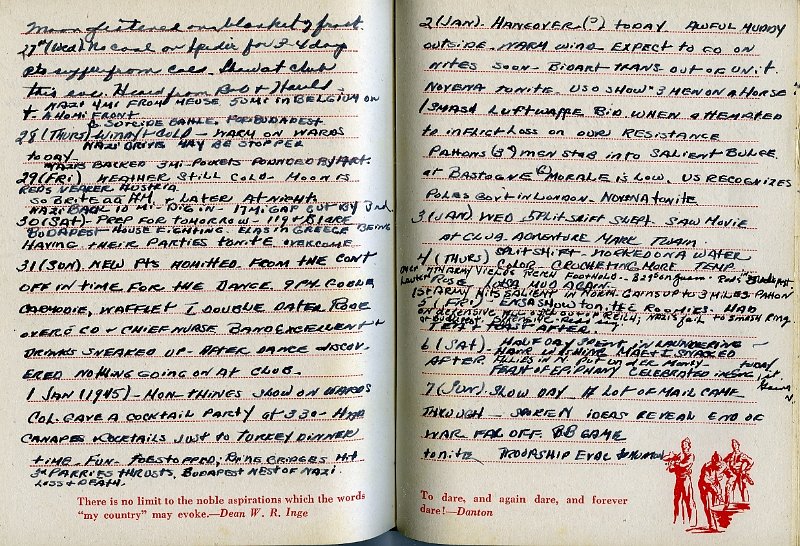 Moon glistened on blanket of frost.
27th (Wed) No coal on Spedir for 3-4 days
Pts suffer from cold. Show at club
this eve. Heard from Bob &
NAZI 4 MI FROM MEUSE 50 MI IN BELGIUM ON
A HOMI FRONT
& SUICIDE BATTLE FOR BUDAPEST
28 (THURS) WINDY & COLD - WARM ON WARDS
NAZI DRIVE MAY BE STOPPED
TODAY
NAZIS BACKED 3 MI - POCKETS POUNDED BY ART.
29 (FRI) WEATHER STILL COLD - MOON IS
REDS NEARER AUSTRIA
SO BRITE AT & LATER AT NIGHT.
NAZI BACK 10 MI. DIG IN - 17 MI GAP CUT BY 3rd.
30 (SAT) - PREP FOR TOMORROW - P.M &
BUDAPEST HOUSE FIGHTING. ELAS IN GREECE BEING
HAVING THEIR PARTIES TONITE OVERCOME
31 (SUN) NEW PTS ADMITTED FROM THE CONT
OFF IN TIME FOR THE DANCE. 9 PX COOKIE,
WAFFLE & I DOUBLE DATED
OVER & CO & CHIEF NURSE BAND EXCELLENT &
DRINKS SNEAKED UP - AFTER DANCE DISCOV-
ERED NOTHING GOING ON AT CLUB.
1 JAN (1945) - MON - THINGS SLOW ON WARDS
COL GAVE A COCKTAIL PARTY AT 330 - HAD
CANAPES & COCKTAILS JUST TO TURKEY DINNER
TIME - FUN - FOE STOPPED; RHINE BRIDGES HIT
3rd PARRIES THRUSTS, BUDAPEST NEST OF NAZI
LOSS & DEATH.
There is no limit to the noble aspirations which the words
"my country" may evoke.—Dean W. R. Inge
2 (JAN) - HANGOVER (?) TODAY AWFUL MUDDY
OUTSIDE - WARM WIND - EXPECT TO GO ON
NITES SOON - BIDART TRANS OUT OF UNIT.
NOVENA TONITE. USO SHOW "3 MEN ON A HORSE"
SMASH LUFTWAFFE BID WHEN ATTEMPTED
TO INFLICT LOSS ON OUR RESISTANCE
PATTONS (3rd) MEN STAB INTO SALIENT BULGE
AT BASTOGNE MORALE IS LOW. US RECOGNIZES
POLES GOVT IN LONDON - NOVENA TONITE
3 (JAN) WED SPLIT SHIFT SLEPT. SAW MOVIE
AT CLUB. ADVENTURE MARK TWAIN.
4 (THURS) SPLIT SHIFT - WORKED ON A WATER
COLOR - CROCHETING MORE TEMP.
7TH ARMY YIELDS FOOTHOLD -
ROSE MUD AGAIN -
1ST ARMY HITS SALIENT IN NORTH. GAINS UP TO 3 MILES. PATTON
5 (FRI) ENSA SHOW TON ITE ROOMIES - HAD
ON OFFENSIVE. THEN REICH; NAZIS FAIL TO SMASH RING
AT BUDAPEST
TEA PARTY AFTER
6 (SAT) - HALF DAY SPENT IN LAUNDERING -
HAIR WASHING MAE & I SNACKED
AFTER. ALLIES IN N. PUT UNDER MONTY - TODAY
FEAST OF EPIPHANY CELEBRATED
7 (SUN) - SLOW DAY A LOT OF MAIL CAME
THROUGH - IDEAS REVEAL END OF
WAR FAR OFF. BB GAME
TONITE TROOPSHIP
To dare, and again dare, and forever
dare!—Danton